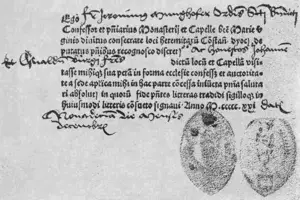 Ego Fr. Jeronimus Ordis Sti
Confessor et pniarius Monasterij et Capelle bt̄e Marie v̄
ginis diuinitus consecrate loci heremitarū Constan̄ dyoc̄ de
putatus pn̄tibus recognosco discret Johanne
et dictū locū et Capellā visi
tasse mihiqȝ sua pctā in forma ecclesie confessi et auctorita
te a sede aplica mihi in hac parte cōcessa iniūcta pn̄ia saluta
ri absolui in quorū fidē pn̄tes literas tradidi sigilloqȝ in
huiusmodi literis cōsueto signaui Anno M cccc xxi
die Mensis
decembris